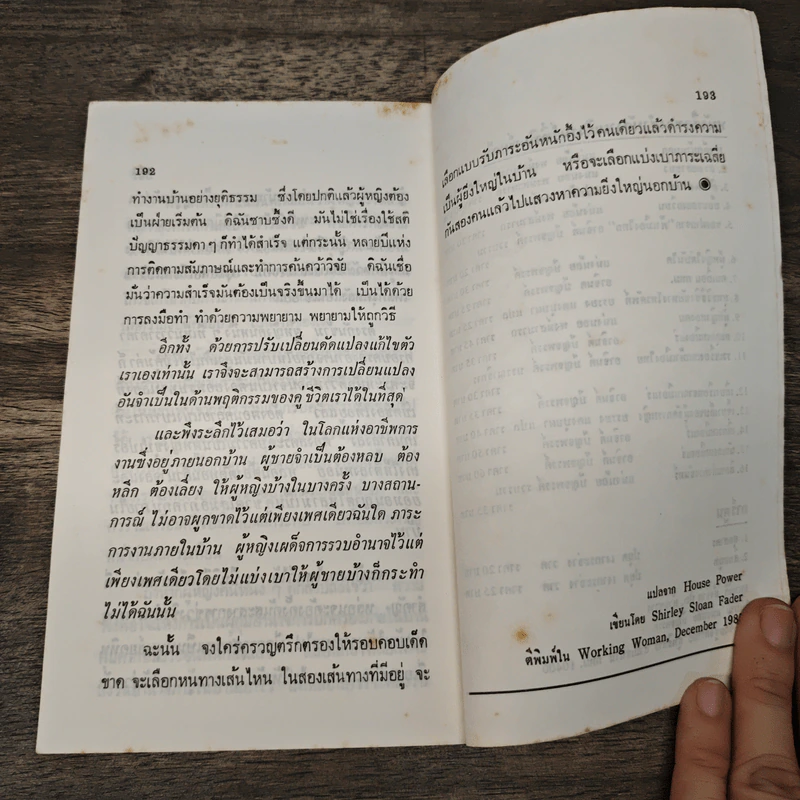 192
ทำงานบ้านอย่างยุติธรรม ซึ่งโดยปกติแล้วผู้หญิงต้อง
เป็นฝ่ายเริ่มต้น ดิฉันซาบซึ้งดี มันไม่ใช่เรื่องใช้สติ
ปัญญาธรรมดา ๆ ก็ทำได้สำเร็จ แต่กระนั้น หลายปีแห่ง
การติดตามสัมภาษณ์และทำการค้นคว้าวิจัย ดิฉันเชื่อ
มั่นว่าความสำเร็จมันต้องเป็นจริงขึ้นมาได้ เป็นได้ด้วย
การลงมือทำ ทำด้วยความพยายาม พยายามให้ถูกวิธี
อีกทั้ง ด้วยการปรับเปลี่ยนดัดแปลงแก้ไขตัว
เราเองเท่านั้น เราจึงจะสามารถสร้างการเปลี่ยนแปลง
อันจำเป็นในด้านพฤติกรรมของคู่ชีวิตเราได้ในที่สุด
และพึงระลึกไว้เสมอว่า ในโลกแห่งอาชีพการ
งานซึ่งอยู่ภายนอกบ้าน ผู้ชายจำเป็นต้องหลบ ต้อง
หลีก ต้องเลี่ยง ให้ผู้หญิงบ้างในบางครั้ง บางสถาน-
การณ์ ไม่อาจผูกขาดไว้แต่เพียงเพศเดียวฉันใด ภาระ
การงานภายในบ้าน ผู้หญิงเผด็จการรวบอำนาจไว้แต่
เพียงเพศเดียวโดยไม่แบ่งเบาให้ผู้ชายบ้างก็กระทำ
ไม่ได้ฉันนั้น
ฉะนั้น จงใคร่ครวญตรึกตรองให้รอบคอบเด็ด
ขาด จะเลือกหนทางเส้นไหน ในสองเส้นทางที่มีอยู่ จะ
193
เลือกแบบรับภาระอันหนักอึ้งไว้คนเดียวแล้วดำรงความ
เป็นผู้ยิ่งใหญ่ในบ้าน หรือจะเลือกแบ่งเบาภาระเฉลี่ย
กันสองคนแล้วไปแสวงหาความยิ่งใหญ่นอกบ้าน ◉
แปลจาก House Power
เขียนโดย Shirley Sloan Fader
ตีพิมพ์ใน Working Woman, December